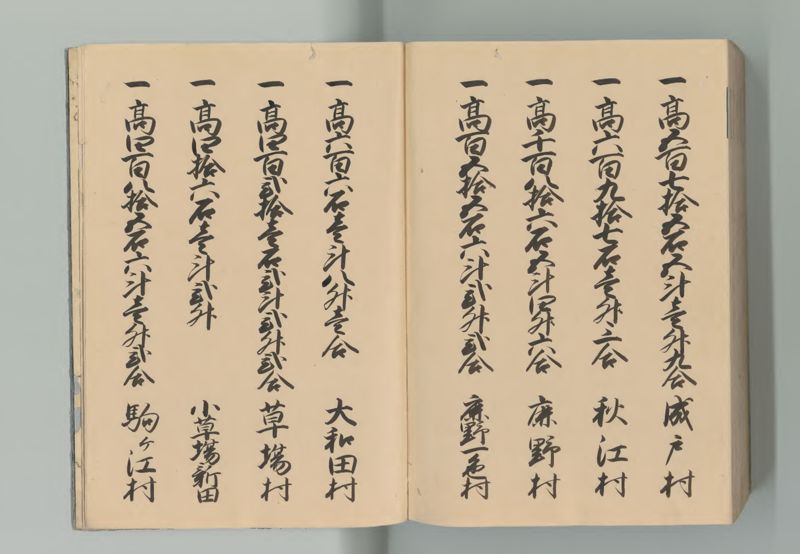 一高五百七拾五石五斗壱升九合 成戸村
一高六百九拾七石壱升三合 秋江村
一高千百八拾六石五斗四升六合 庶野村
一高百五拾五石六斗弐升弐合 庶野一色村
一高六百六石壱斗八升壱合 大和田村
一高四百弐拾壱石弐斗弐升弐合 草場村
一高四拾六石壱斗弐升 小草場新田
一高四百八拾五石六斗壱升弐合 駒ヶ江村